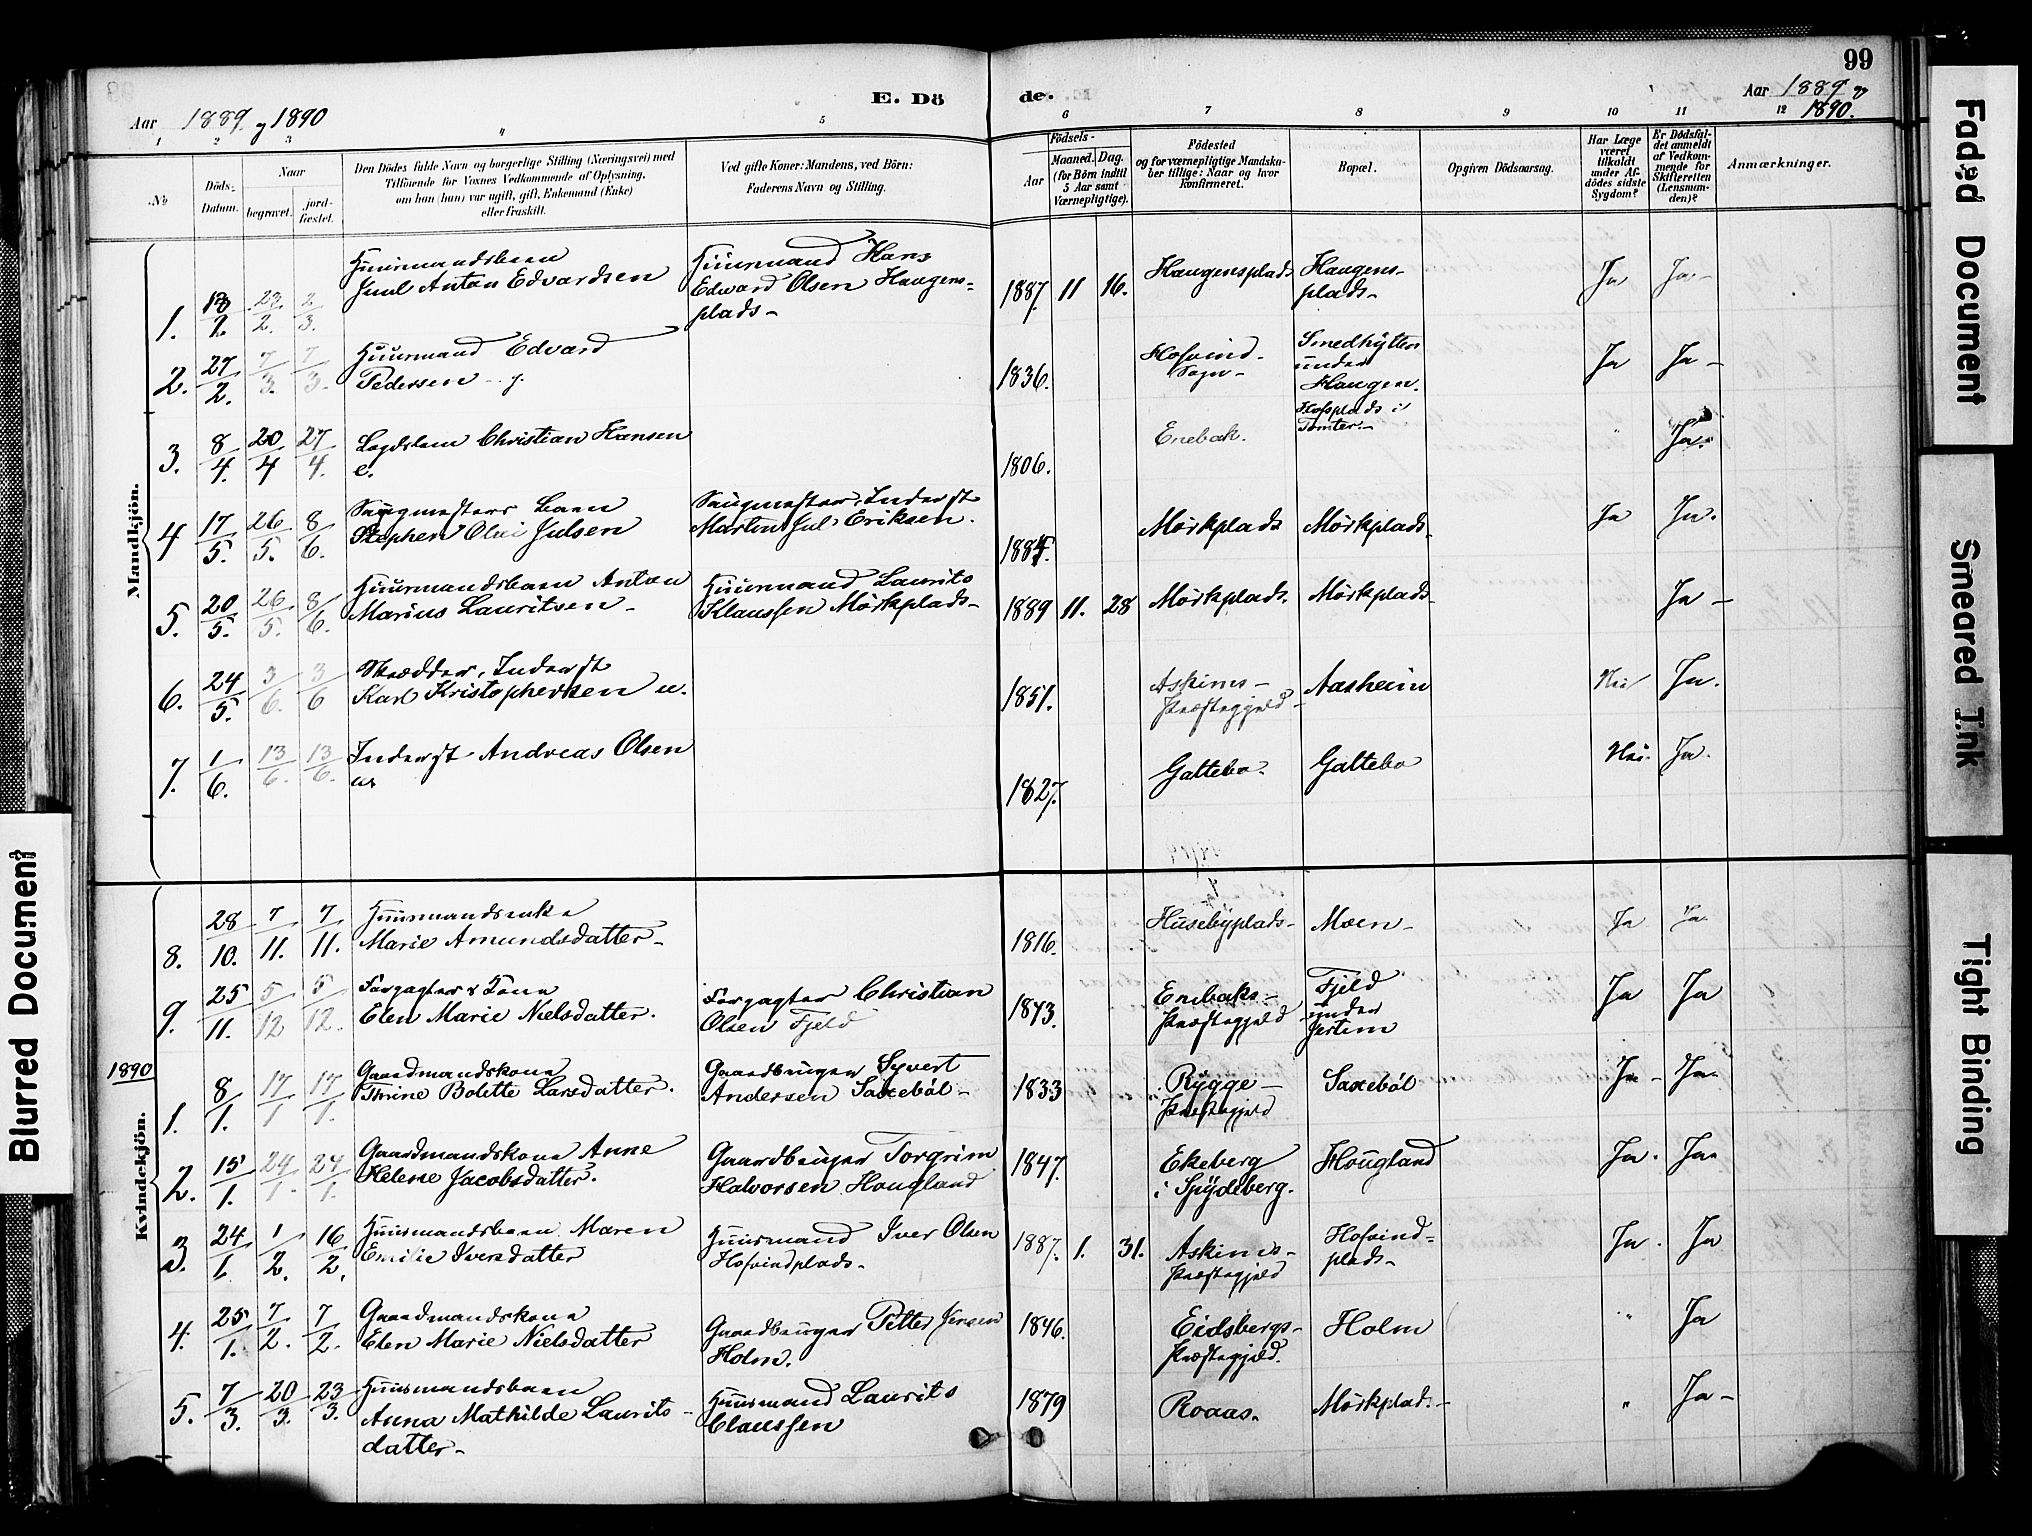 99
E. Döde.
Aar 1889 og 1890
Aar 1889 og 1890.
1 2 3 4 5 6 7 8 9 10 11 12
No
Döds-Datum.
Naar
begravet.
jordfæstet.
Den Dödes fulde Navn og borgerlige Stilling (Næringsvei) med
Tilföiende for Voxnes Vedkommende af Oplysning,
om han (hun) var ugift, gift, Enkemand (Enke)
eller fraskilt.
Ved gifte Koner: Mandens, ved Börn:
Faderens Navn og Stilling.
Födsels-
Aar
Maaned. Dag.
(for Börn indtil
5 Aar samt
Værnepligtige).
Födested
og for værnepligtige Mandska-
ber tillige: Naar og hvor
konfirmeret.
Bopæl.
Opgiven Dödsaarsag.
Har Læge
været
tilkaldt
under Af-
dödes sidste
Sygdom?
Er Dödsfal-
det anmeldt
af Vedkom-
mende for
Skifteretten
(Lensman-
den)?
Anmærkninger.
Mandkjön.
1. 23/2. 2/3. Huusmandsbarn
Juul Anton Edvardsen
Huusmand Hans
Edvard Olsen Haugens-
plads-
1887. 11 16. Haugensplads Haugens-
plads- Ja Ja-
2. 27/2. 7/3. 7/3. Huusmand Edvard
Pedersen - g.
1836. Hofvind-
Sogn- Smedhytten
under
Haugen. Ja Ja-
3. 8/4. 20/4 27/4. Lægdslem Christian Hansen
e.
1806. Enebak. Hofsplads i
Tomter.- " Ja.
4 17/5. 26/5. 8/6. Saugmesters Barn
Stephen Olai Julsen
Saugmester, Inderst
Martin Jul. Eriksen.
Mörkplads Mörkplads. Ja Ja.
5. 20/5. 26/5. 8/6. Huusmandsbarn Anton
Marius Lauritsen-
Huusmand Laurits
Klaussen Mörkplads-
1889 11. 28 Mörkplads. Mörkplads- Ja-
6. 24/5. 3/6. 3/6 Skrædder, Inderst
Karl Kristophersen u.
1851. Askims-
Præstegjeld- Aasheim Nei Ja.
7. 1/6. 13/6. 13/6. Inderst Andreas Olsen
1827. Galtebo. Galtebo Nei. Ja.
Kvindekjön.
8. 28/10. 7/11. 7/11. Huusmandsenke
Marie Amundsdatter-
1816. Husebyplads- Moen- Ja Ja.
9. 25/11. 5/12 5/12. Forpagters Kone
Elen Marie Nielsdatter.
Forpagter Christian
Olsen Fjeld
1843. Enebaks-
Præstegjeld Fjeld
under Ja Ja
1890
1. 8/1. 17/1 17/1. Gaardmandskone
Trine Bolette Larsdatter.
Gaardbruger Syvert
Andersen Saxeböl-
1833 Rygge-
Præstegjeld Saxeböl Ja- Ja.
2. 15/1. 24/1. 24/1. Gaardmandskone Anne
Helene Jacobsdatter.
Gaardbruger Torgrim
Halvorsen Hougland
1847. Ekeberg
i Spydeberg. Hougland Ja. Ja.
3. 24/1. 1/2. 16/2. Huusmandsbarn Maren
Emilie Iversdatter
Huusmand Iver Olsen
Hofvindplads.
1887. 1. 31. Askims-
Præstegjeld Hofvind-
plads- Ja. Ja
4. 25/1. 7/2. 7/2. Gaardmandskone
Elen Marie Nielsdatter
Gaardbruger Petter Jensen
Holm.
1846. Eidsbergs-
Præstegjeld. Holm " Ja
5. 7/3. 20/3. 23/3. Huusmandsbarn
Anna Mathilde Laurits-
datter-
Huusmand Laurits
Claussen
1879 Roaas. Mörkplads- " Ja-
Blurred Document
Faded Document
Smeared Ink
Tight Binding